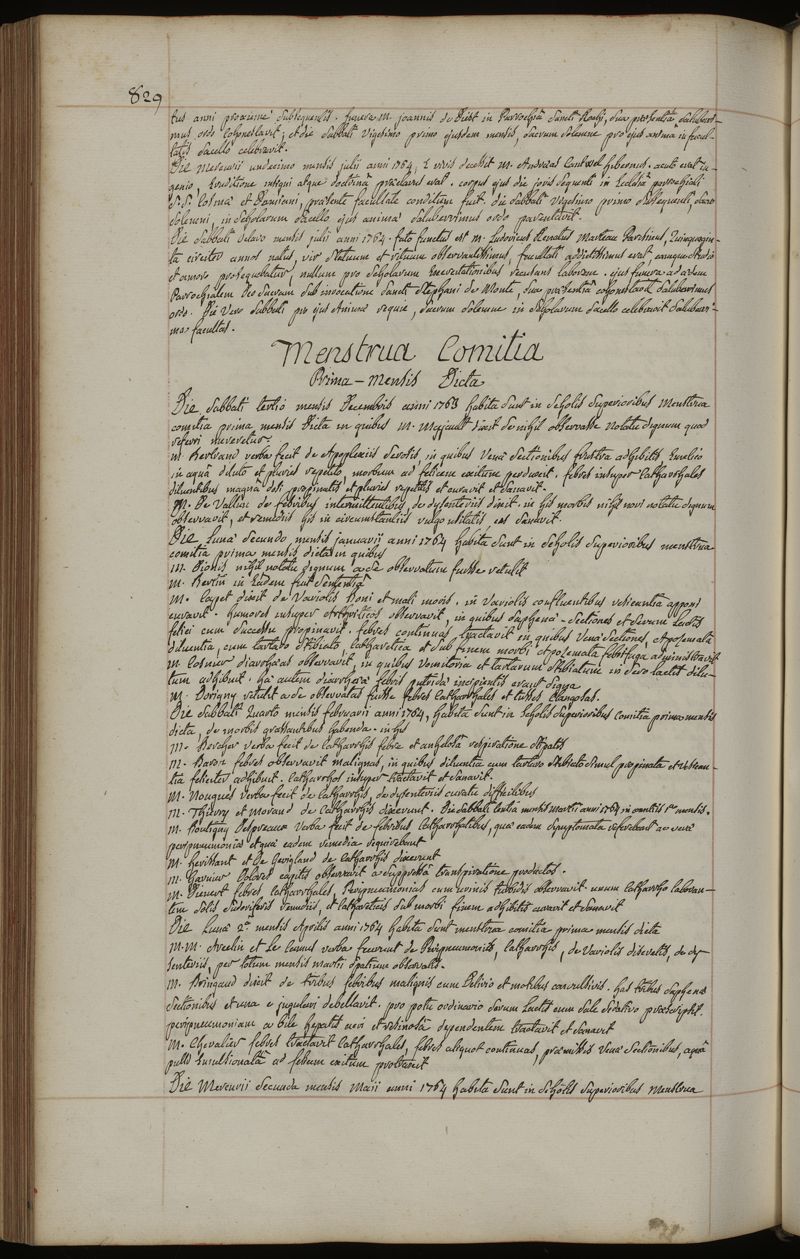 829
tus anni proxime subsequentis. funera M. joannis de Diest in Parrochiâ Sancti Rochi, sua praesentia saluberri-
mus ordo cohonestavit; et die Sabbati vigesimo primo ejusdem mensis, Sacrum solemne pro ejus animâ in facul-
tatis sacello celebravit.
Die Mercurii undecimo mensis julii anni 1764, è vivis decessit M. Andraeas hibernus. acuti erat in-
genio, Eruditione integri atque doctrinâ praeclarus erat. corpus ejus die jovis Sequenti in Ecclesiâ parrochiali
S.S. Cosmae et Damiani, praesente facultate conditum fuit. die Sabbati Vigesimo primo Subsequenti, sacro
Solemni, in Scholarum Sacello ejus animae Saluberrimus ordo parentavit.
Die Sabbati mensis julii anni 1764. fato functus est M. Ludovicus Renatus Marteau Parisinus, Quinquagin-
ta circiter annos natus, vir Statuum et rituum observantissimus, facultati addictissimus erat, eamque studio
et amore prosequebatur, nullum pro Scholarum Exercitationibus recusans laborem. ejus funera ad aedem
Parrochialem Deo Sacram Sub invocatione Sancti Stephani de Monte, sua praesentia cohonestavit Saluberrimus
ordo. Die vero Sabbati pro ejus Animae requie, Sacrum Solemne in Scholarum Sacello celebravit Saluberri-
ma facultas.
Menstrua Comitia
Prima - Mensis Dicta
Die Sabbati tertio mensis Decembris anni 1763 habita Sunt in Scholis Superioribus Menstrua
comitia prima mensis Dicta in quibus M. Majault dixit se nihil observasse Notatu dignum quod
referri mereretur.
M. Bertrand verba fecit de Apoplexiis Serosis, in quibus Venae Sectionibus frustra adhibitis, Emetico
in aquâ diluto et pluries repetito, morbum ad felicem exitum perduxit. febres insuper Catharrhales
diluentibus magnâ dosi propinatis et pluries repetitis et curavit et Sanavit.
M. De Vallun de febribus intermittentibus, de dysenteriis dixit. in his morbis nihil novi notatu dignum
observavit, et remediis his in circumstantiis vulgo usitatis, eas Sanavit.
Die Lunae Secundo mensis januarii anni 1764 habita Sunt in Scholis Superioribus menstrua
comitia prima mensis dicta in quibus
M. Dionis nihil notatu dignum a se observatum fuisse retulit
M. Bertin in Eadem fuit Sententiâ
M. Payet dixit de Variolis boni et mali moris. in Variolis confluentibus vesicantia apponi
curavit. humores insuper Arthriticos observavit, in quibus Saphenae Sectiones et Serum lactis
felici cum Successu propinavit. febres continuas tractavit in quibus Venae Sectiones, Apozemata
diluentia, cum tartaro Stibiato, Cathartica et Sub finem morbi Apozemata febrifuga administravit
M. Cosnier diarrhaeas observavit, in quibus Vomitoria et tartarum Stibiatum in Sero lactis dilu-
tum adhibuit. hae autem diarrhaeae febris putridae incipientis erant Signa
M. Dorigny retulit a se observatas fuisse febres Catharrhales et tusses Clangosas.
Die Sabbati Quarto mensis februarii anni 1764, habita Sunt in Scholis Superioribus Comitia prima mensis
dicta, de morbis grassantibus habenda. in his
M. Bercher verba fecit de Catharrhis febre et anhelosâ respiratione Stipatis
M. Baron febres observavit malignas, in quibus diluentia cum tartaro Stibiato Simul propinata et vesican-
tia feliciter adhibuit. Catharrhos insuper tractavit et Sanavit.
M. Nouguès verba fecit de Catharrhis, de dysenteriis curatu difficilibus
M. Thiéry et Morand de Catharrhis dixerunt. Die Sabbati tertia mensis martii anni 1764 in comitiis 1ae mensis.
M. Boutigny Despreaux verba fecit de febribus Catharrhalibus, quae eadem Symptomata referebant ac verae
peripneumoniae et quae eadem remedia requirebant
M. Herissant et De Gevigland de Catharrhis dixerunt
M. Garnier Dolores capitis observavit a Suppressâ transpiratione productos.
M. Dienert febres, Catharrhales, Peripneumonias cum urinis turbidis observavit. unum Catharrho laboran-
tem Solis, Sudoriferis remediis, et Catharticis Sub morbi finem adhibitis curavit et Sanavit
Die Lunae 2a mensis Aprilis anni 1764 habita Sunt menstrua comitia prima mensis dicta
M.M. Arcelin et Le Camus verba fecerunt de Peripneumoniis, Catharrhis, de Variolis discretis, de dy-
senteriis, per totum mensis martii Spatium observatis.
M. Bringaud dixit de tribus febribus malignis cum Delirio et motibus convulsivis. has tribus Saphenae
Sectionibus et unâ è jugulari debellavit. pro potu ordinario Serum Lactis cum Sale Sedativo praescripsit.
peripneumoniam a bile hepatis acri et resinosâ dependentem tractavit et Sanavit
M. Chevalier febres tractavit Catharrhales, febres aliquot continuas, praemissis Venae Sectionibus, aquâ
pulli Emulsionatâ ad febrium exitum protraxit
Die Mercurii Secunda mensis Maii anni 1764 habita Sunt in Scholis Superioribus Menstrua